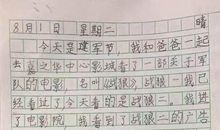 8月1日 星期二 晴
今天是建军节,我和爸爸一起
去嘉之华中心影城看了一部关于军
队的电影,名叫《战狼二》,战狼一我已
经看过了,今天去的是战狼二。我进
了电影院,我看到了战狼二的广告